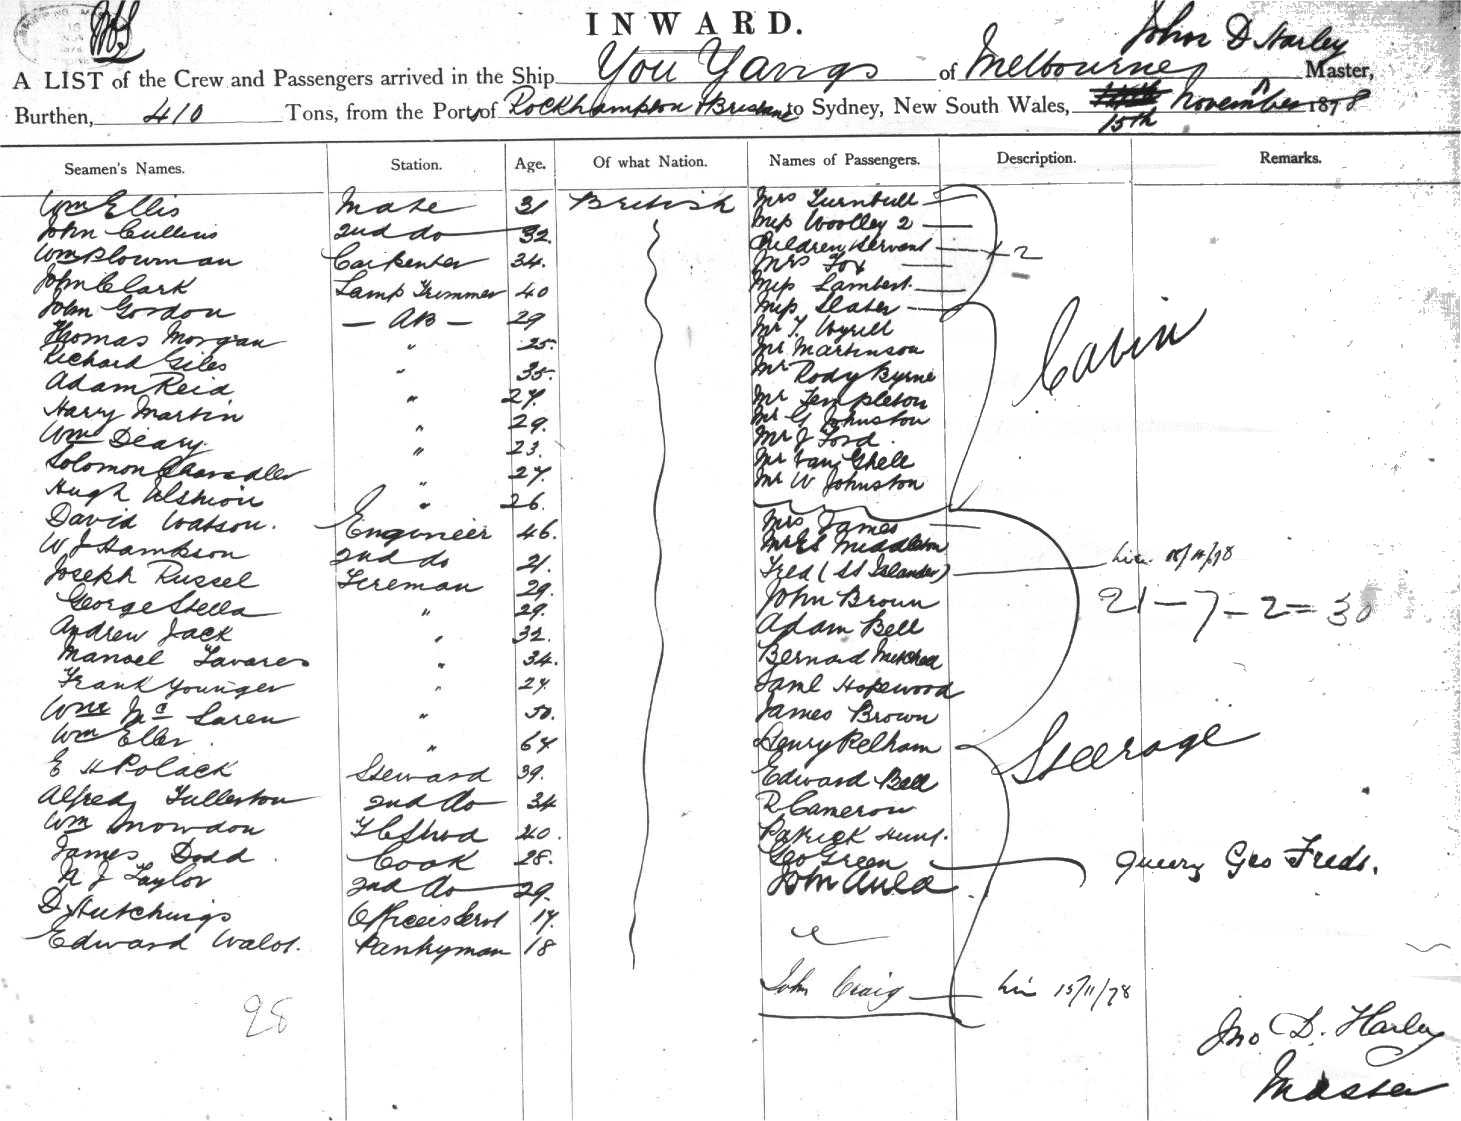 INWARD.
John D Harley
A LIST of the Crew and Passengers arrived in the Ship You Yangs of Melbourne, Master,
Burthen, 410 Tons, from the Port of Rockhampton & Brisbane to Sydney, New South Wales, 15th November 1878
Seamen's Names. Station. Age. Of what Nation. Names of Passengers. Description. Remarks.
Wm Ellis Mate 31 British Mrs Turnbull
John Cullins 2nd do 32. Miss Woolley 2
Wm Plowman Carpenter 34. Children & Servant + 2
Mrs Fox
John Clark Lamp Trimmer 40 Miss Lambert
John Gordon — AB — 29 Miss Slater
Mr T. Wyrill
Thomas Morgan " 25. Mr Martinson
Richard Giles " 35. Mr Rody Byrne
Adam Reid " 27. Mr Templeton
Cabin
Harry Martin " 29. Mr G Johnston
Wm Deary. " 23. Mr J Ford.
Solomon Chandler " 27. Mr Van Ghell
Hugh " 26. Mr W Johnston
David Watson. Engineer 46. Mrs James
W J Hampson 2nd do 21. Middleton
Joseph Russel Fireman 29. Fred (St Islander) 15/11/78
George Stella " 29. John Brown 21 — 7 — 2 = 30
Andrew Jack " 32. Adam Bell
Manoel Tavares " 34. Bernard Mitchell
Frank Younger " 27. Saml Hopewood
Wm Mc Laren " 50. James Brown
Wm Eller. " 64 Henry Pelham
Steerage
E H Polack Steward 39. Edward Bell
Alfred Fullerton 2nd do 34 R Cameron
Wm Snowdon 40. Patrick Hunt.
James Dodd. Cook 28. Geo Green Query Geo Freds.
Taylor 2nd do 29. John Auld
D Hutchings Officers Servt 17.
Edward Pantryman 18
John Craig 15/11/78
28
Jno. D. Harley
Master